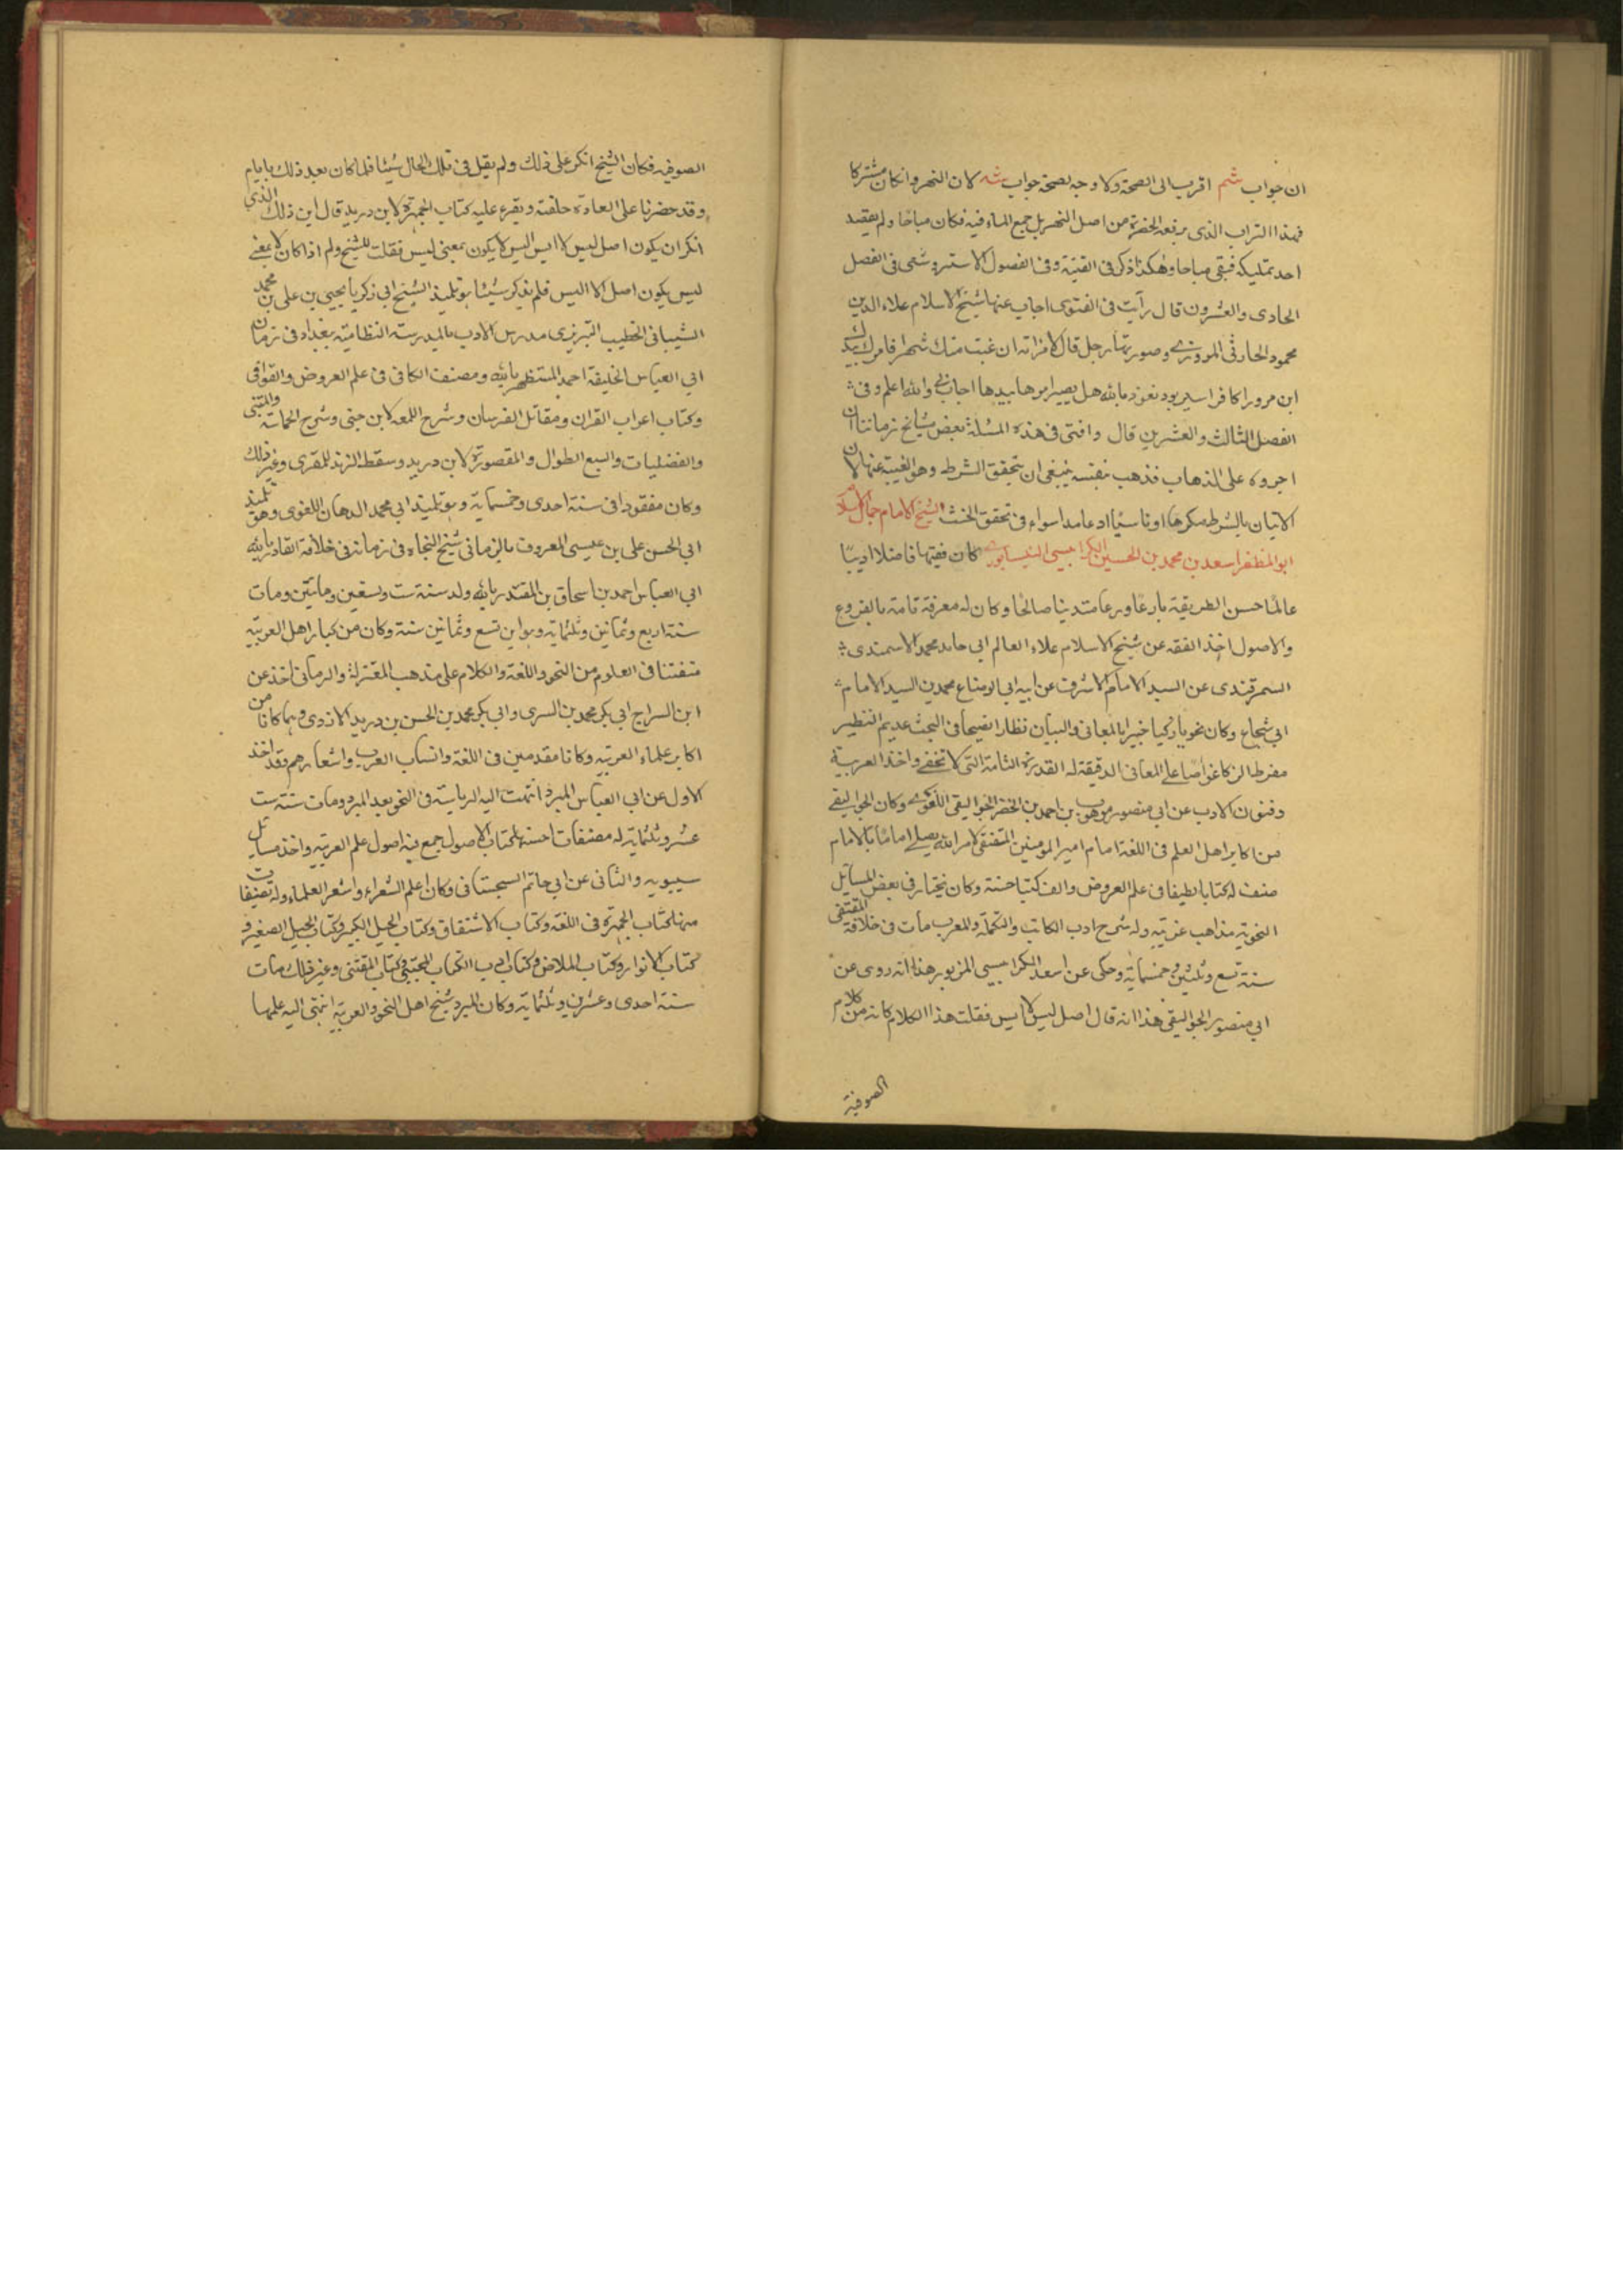 ان جواب شم اقرب الى الصحة ولا وجه لصحة جواب شه لان النهر وان كان مشتركا
فهذا التراب الذى يرفعه الحفرة من اصل النهر بل جمع الماء فيه فكان مباحا ولم يقصد
احد تمليكه فبقى مباحا وهكذا ذكر فى القنية وفى الفصول الاستروشنى فى الفصل
الحادى والعشرون قال رأيت فى الفتوى اجاب عنها شيخ الاسلام علاء الدين
محمود الحارثى المروزى وصورتها رجل قال لامراته ان غبت منك شهرا فامرك بيدك
ابن مرورا كافر اسير بود نعوذ بالله هل يصير امرها بيدها اجاب نى والله اعلم وفى
الفصل الثالث والعشرين قال وافتى فى هذه المسئلة بعض مشايخ زماننا ان
اجروه على الذهاب فذهب بنفسه ينبغى ان يتحقق الشرط وهو الغيبة عنها لان
الاتيان بالشرط مكرها او ناسيا او عامدا سواء فى تحقق الحنث الشيخ الامام جمال الاسلام
ابو المظفر اسعد بن محمد بن الحسين الكرابيسى النيسابورى كان فقيها فاضلا اديبا
عالما حسن الطريقة بارعا ورعا متدينا صالحا وكان له معرفة تامة بالفروع
والاصول اخذ الفقه عن شيخ الاسلام علاء العالم ابى حامد محمد الاسمندى
السمرقندى عن السيد الامام الاشرف عن ابيه ابى الوضاع محمد بن السيد الامام
ابى شجاع وكان نحويا زكيا خبيرا بالمعانى والبيان نظارا فصيحا فى البحث عديم النظير
مفرط الزكا غواصا على المعانى الدقيقة له القدرة التامة التى لا تخفى واخذ العربية
وفنون الادب عن ابى منصور موهوب بن احمد بن الخضر الجواليقى اللغوى وكان الجواليقى
من اكابر اهل العلم فى اللغة امام امير المؤمنين المقتفى لامر الله يصلى اماما بالامام
صنف له كتابا لطيفا فى علم العروض والف كتبا حسنة وكان يختار فى بعض المسايل
النحوية مذاهب غريبة وله شرح ادب الكاتب والتكملة والمعرب مات فى خلافة المقتفى
سنة تسع وثلثين وخمسماية وحكى عن اسعد الكرابيسى المزبور هذا انه روى عن
ابى منصور الجواليقى هذا انه قال اصل ليس لا ايس فقلت هذا الكلام كانه من كلام
الصوفية
الصوفيه فكان الشيخ انكر على ذلك ولم يقل فى تلك الحال شيئا فلما كان بعد ذلك بايام
وقد حضرنا على العادة حلقته ويقرء عليه كتاب الجمهرة لابن دريد قال اين ذلك الذى
انكر ان يكون اصل ليس لا ايس اليس لا يكون بمعنى ليس فقلت للشيخ ولم اذا كان لا بمعنى
ليس يكون اصل لا اليس فلم يذكر شيئا هو تلميذ الشيخ ابى زكريا يحيى بن على بن محمد
الشيبانى الخطيب التبريزى مدرس الادب بالمدرسة النظامية ببغداد فى زمان
ابى العباس الخليفة احمد المستظهر بالله ومصنف الكافى فى علم العروض والقوافى
وكتاب اعراب القران ومقاتل الفرسان وشرح اللمعه لابن جنى وشرح الحماسة والمتنبى
والفضليات والسبع الطوال والمقصورة لابن دريد وسقط الزند للمقرى وغير ذلك
وكان مفقودا فى سنة احدى وخمسماية وهو تلميذ ابى محمد الدهان اللغوى وهو تلميذ
ابى الحسن على بن عيسى المعروف بالرمانى شيخ النحاه فى زمانه فى خلافة القادر بالله
ابى العباس احمد بن اسحاق بن المقتدر بالله ولد سنة ست وتسعين ومايتين ومات
سنة اربع وثمانين وثلثماية وهو ابن تسع وثمانين سنة وكان من كبار اهل العربيه
متفننا فى العلوم من النحو واللغة والكلام على مذهب المعتزلة والرمانى اخذ عن
ابن السراج ابى بكر محمد بن السرى وابى بكر محمد بن الحسن بن دريد الازدى وهما كانا من
اكابر علماء العربيه وكانا مقدمين فى اللغة وانساب العرب واشعارهم وقد اخذ
الاول عن ابى العباس المبرد انتهت اليه الرياسة فى النحو بعد المبرد ومات سنة ست
عشر وثلثماية له مصنفات احسنها كتاب الاصول جمع فيه اصول علم العربيه واخذ مسايل
سيبويه والثانى عن ابى حاتم السجستانى وكان اعلم الشعراء واشعر العلماء وله تصنيفات
منها كتاب الجمهرة فى اللغة وكتاب الاشتقاق وكتاب الخيل الكبير وكتاب الخيل الصغير و
كتاب الانوار وكتاب الملاحن وكتاب ادب الكتاب المجتبى وكتاب المقتنى وغير ذلك مات
سنة احدى وعشرين وثلثماية وكان المبرد شيخ اهل النحو والعربية انتهى اليه علمها